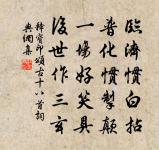 臨濟慣白拈
普化慣掣顛
一場好笑具
後世作三玄
釋寶印頌古十八首詞
典網集